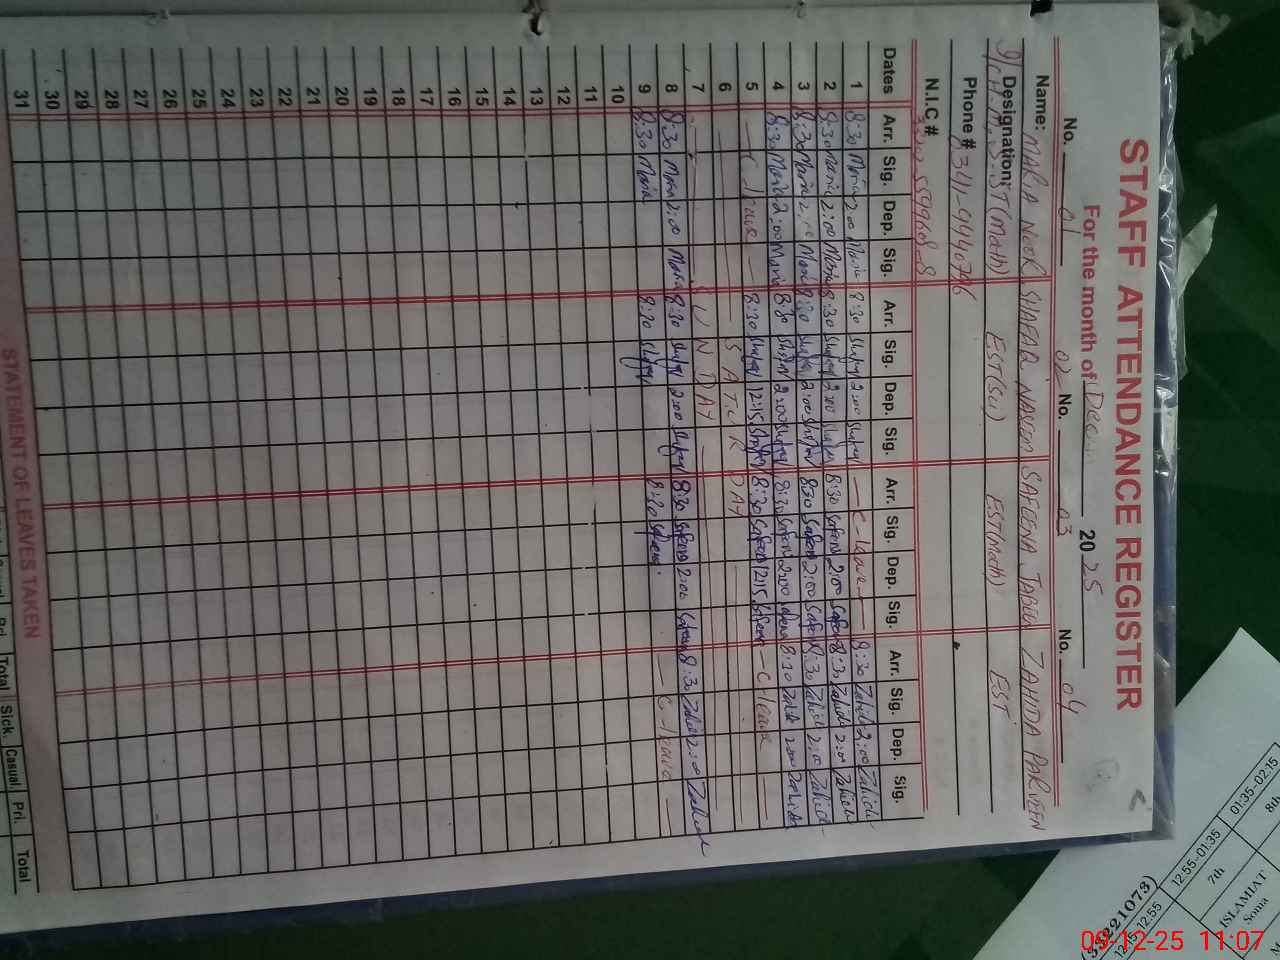 STAFF ATTENDANCE REGISTER
For the month of Decem 2025
No. 01 No. 02 No. 03 No. 04
Name: MARIA NOOR SHAFAQ NASEEM SAFEENA JABEEN ZAHIDA PARVEEN
Designation: S.ST(Math) EST(Sci) EST(Math) EST
Phone # 0341-4440796
N.I.C #
Dates Arr. Sig. Dep. Sig. Arr. Sig. Dep. Sig. Arr. Sig. Dep. Sig. Arr. Sig. Dep. Sig.
1 8:30 Maria 2:00 Maria 8:30 Shafaq 2:00 Shafaq — C-leave — 8:30 Zahida 2:00 Zahida
2 8:30 Maria 2:00 Maria 8:30 Shafaq 2:00 Shafaq 8:30 Safeena 2:00 Safeena 8:30 Zahida 2:00 Zahida
3 8:30 Maria 2:00 Maria 8:30 Shafaq 2:00 Shafaq 8:30 Safeena 2:00 Safeena 8:30 Zahida 2:00 Zahida
4 8:30 Maria 2:00 Maria 8:30 Shafaq 2:00 Shafaq 8:30 Safeena 2:00 Safeena 8:30 Zahida 2:00 Zahida
5 — C-leave — 8:30 Shafaq 12:15 Shafaq 8:30 Safeena 12:15 Safeena — C-leave —
6 SATURDAY
7 SUNDAY
8 8:30 Maria 2:00 Maria 8:30 Shafaq 2:00 Shafaq 8:30 Safeena 2:00 Safeena 8:30 Zahida 2:00 Zahida
9 8:30 Maria 8:30 Shafaq 8:30 Safeena — C-leave —
10
11
12
13
14
15
16
17
18
19
20
21
22
23
24
25
26
27
28
29
30
31
STATEMENT OF LEAVES TAKEN
Total Sick. Casual Pri. Total
(33221073)
12:15-12:55 12:55-01:35 01:35-02:15
7th 8th
ISLAMIAT
Soma
09-12-25 11:07